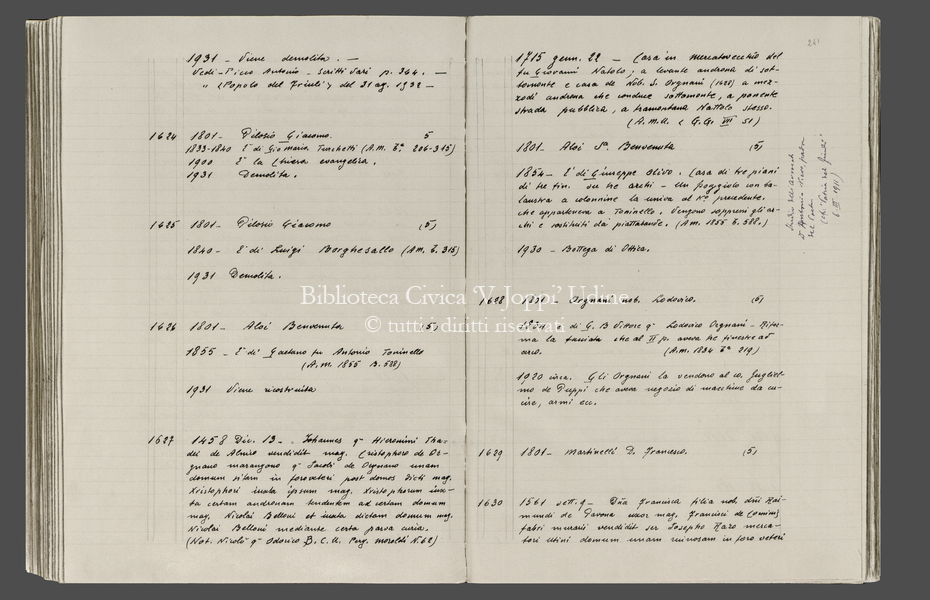 1931 - Viene demolita. -
Vedi - Picco Antonio - Scritti Vari p. 364. -
" (Popolo del Friuli) del 31 ag. 1932 -
1624 1801 - Pilosio Giacomo. 5
1833-1840 È di Gio Maria Turchetti (A.M. Ba 206-315)
1900 È la Chiesa evangelica.
1931 Demolita.
1625 1801 - Pilosio Giacomo (5)
1840 - È di Luigi Borghesallo (A.m. B. 315)
1931 Demolita.
1626 1801 - Aloi Benvenuta (5)
1855 - È di Gaetano fu Antonio Toninello
(A.m. 1855 B. 588)
1931 Viene ricostruita
1627 1458 Dic. 13 - Johannes q.m Hieronimi Tha-
dei de Alnico vendidit mag. Cristophoro de Or-
gnano marangono q.m Jacobi de Orgnano unam
domum sitam in foroveteri post domos dicti mag.
Xristophori iuxta ipsum mag. Xristophorum iux-
ta certam andronam tendentem ad certam domum
mag. Nicolai Belloni et iuxta dictam domum mag.
Nicolai Belloni mediante certa parva curia.
(Not. Nicolò q.m Odorico B.C.U. Perg. Moroldi N. 62)
261
1715 genn. 22 - Casa in mercatovecchio del
fu Giovanni Natolo, a levante androna di sot-
tomonte e casa de Nob. S. Orgnani (1628) a mez-
zodì androna che conduce sottomonte, a ponente
strada pubblica, a tramontana Nattolo stesso.
(A.M.U. e G.G. III 51)
1801. Aloi Sa. Benvenuta (5)
1854 - È di Giuseppe Olivo. Casa di tre piani
di tre fin. su tre archi - Un poggiolo con ba-
laustra a colonnine la univa al No precedente.
che apparteneva a Toninello. Vengono soppressi gli ar-
chi e sostituiti da piattabande. (A.m. 1855 B. 588.)
1930 - Bottega di Ottica.
1628 1801 - Orgnani nob. Lodovico. (5)
di G. B Vittore q.m Lodovico Orgnani - Rifor-
ma la facciata che al II p. aveva tre finestre ad
arco. (A.m. 1834 Ba 219)
1920 circa. Gli Orgnani la vendono al co. Gugliel-
mo de Puppi che aveva negozio di macchine da cu-
cire, armi ecc.
1629 1801 - Martinelli D. Francesco. (5)
1630 1561 sett. 9 - Dna Francisca filia nob. dni Rai-
mundi de Pavona uxor mag. Francisci de
fabri murarii vendidit ser Josepho Raro merca-
tori Utini domum unam ruinosam in foro veteri
Biblioteca Civica 'V. Joppi' Udine
© tutti i diritti riservati